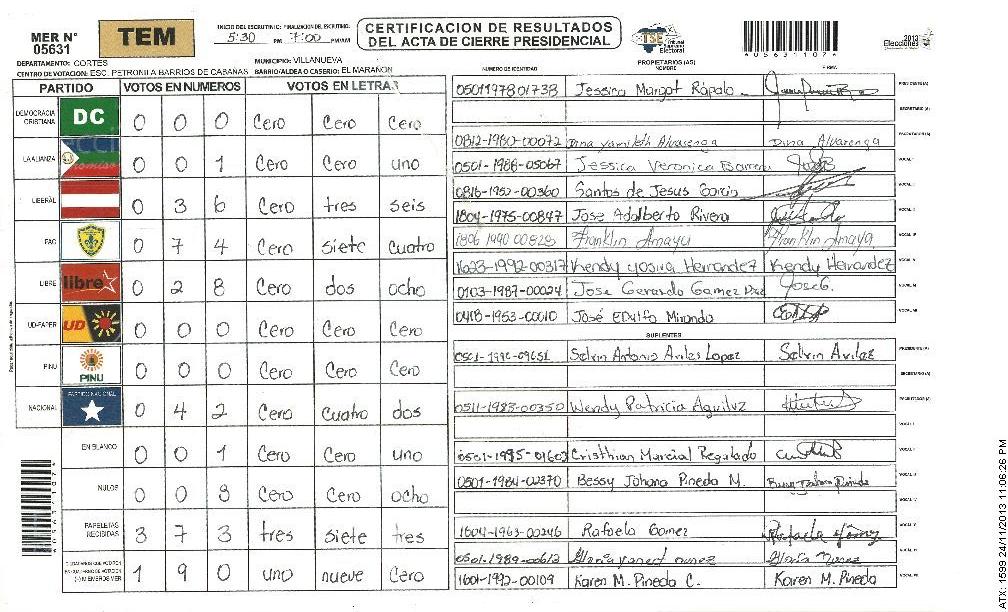 MER N° 05631
TEM
INICIO DEL ESCRUTINIO: FINALIZACION DEL ESCRUTINIO:
5:30 PM 7:00 PM/AM
CERTIFICACION DE RESULTADOS
DEL ACTA DE CIERRE PRESIDENCIAL
TSE Tribunal Supremo Electoral
0563111074
2013 Elecciones
DEPARTAMENTO: CORTES MUNICIPIO: VILLANUEVA
CENTRO DE VOTACION: ESC. PETRONILA BARRIOS DE CABAÑAS BARRIO/ALDEA O CASERIO: EL MARAÑON
PARTIDO VOTOS EN NUMEROS VOTOS EN LETRAS
DEMOCRACIA CRISTIANA DC 0 0 0 Cero Cero Cero
LA ALIANZA 0 0 1 Cero Cero uno
LIBERAL 0 3 6 Cero tres seis
PAC 0 7 4 Cero siete cuatro
LIBRE libre 0 2 8 Cero dos ocho
UD-FAPER UD 0 0 0 Cero Cero Cero
PINU PINU 0 0 0 Cero Cero Cero
NACIONAL PARTIDO NACIONAL 0 4 2 Cero Cuatro dos
EN BLANCO 0 0 1 Cero Cero uno
NULOS 0 0 8 Cero Cero ocho
PAPELETAS RECIBIDAS 3 7 3 tres siete tres
CIUDADANOS QUE VOTARON EN CUADERNO DE VOTACION (+) MIEMBROS MER 1 9 0 uno nueve Cero
PROPIETARIOS (AS)
NUMERO DE IDENTIDAD NOMBRE FIRMA
0501197801738 Jessica Margot Rápalo PRESIDENTE(A)
SECRETARIO (A)
0812-1980-00072 Dina Yamileth Alvarenga Dina Alvarenga ESCRUTADOR (A)
0501-1988-05067 Jessica Veronica Barrera VOCAL I
0816-1952-00360 Santos de Jesus Garcia VOCAL II
1804-1975-00847 Jose Adalberto Rivera VOCAL III
1806 1990 00828 Franklin Amaya Franklin Amaya VOCAL IV
1623-1992-00317 Kendy Yosira Hernandez Kendy Hernandez VOCAL V
0103-1987-00024 Jose Gerardo Gamez Diaz Jose G. VOCAL VI
0418-1953-00010 José Edulfo Miranda VOCAL VII
SUPLENTES
Selvin Antonio Aviles Lopez Selvin Aviles PRESIDENTE (A)
SECRETARIO (A)
0511-1983-00350 Wendy Patricia Aguiluz ESCRUTADOR (A)
VOCAL I
0501-1985-01602 Cristhian Murcial Regalado VOCAL II
0501-1984-02370 Bessy Johana Pineda M. Bessy Johana Pineda VOCAL III
VOCAL IV
1604-1963-00246 Rafaela Gomez Rafaela Gómez VOCAL V
0501-1989-00612 Gloria Yaned nunez Gloria Nunez VOCAL VI
1601-1992-00109 Karen M. Pineda C. Karen M. Pineda VOCAL VII
ATX: 1599 24/11/2013 11:06:26 PM